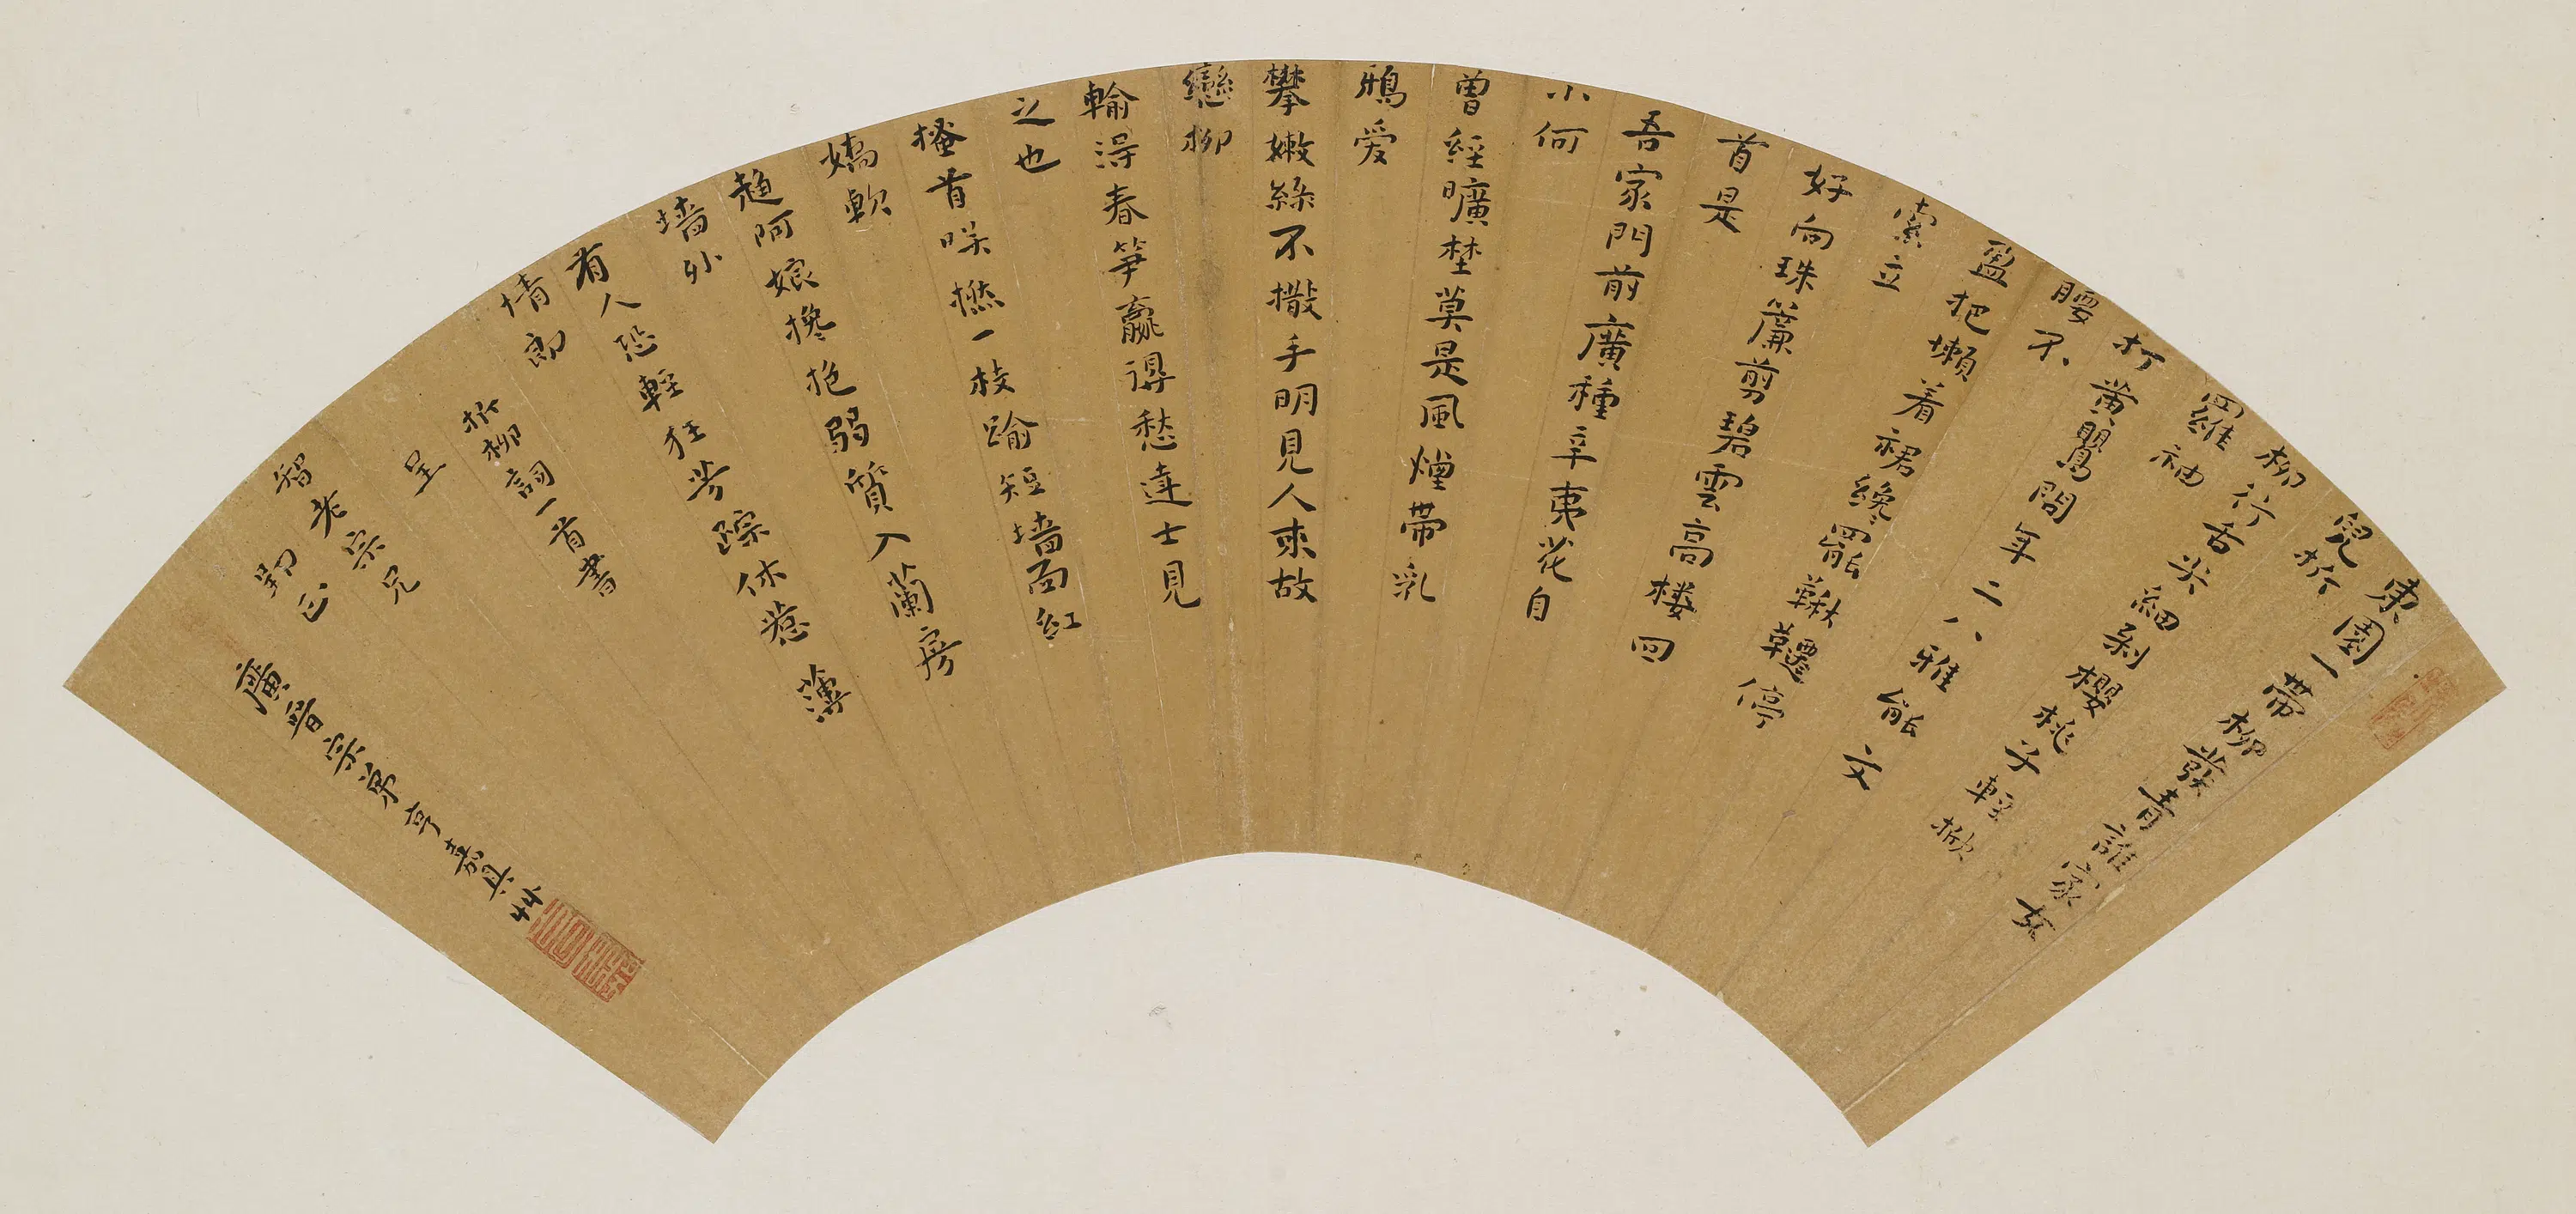 東園一帶柳發青誰家女
兒折
柳行舌尖細刹櫻桃子輕揪
羅袖
打黃鸎問年二八雅能文
腰不
盈把懶着裙纔罷鞦韆停
索立
好向珠簾剪碧雲高樓回
首是
吾家門前廣種辛夷花自
小何
曾經曠埜莫是風煙帶乳
鴉愛
攀嫩絲不撒手明見人來故
戀柳
輸淂春笋贏得愁達士見
之也
搔首咲撚一枝踰短墻面紅
嬌軟
趨阿娘攙抱弱質入蘭房
墻外
有人恐輕狂芳蹤休惹薄
情郎
折柳詞一首書
呈
智老宗兄
郢正
廣晉宗弟亨嘉具艸